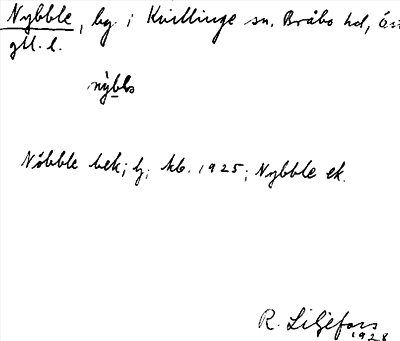 Nybble, bg. i Kvillinge sn. Bråbo hd, Öst
gtl. l.
nybbls
Nöbble bek; bg; kb. 1925; Nybble ek.
R. Liljefors
1928